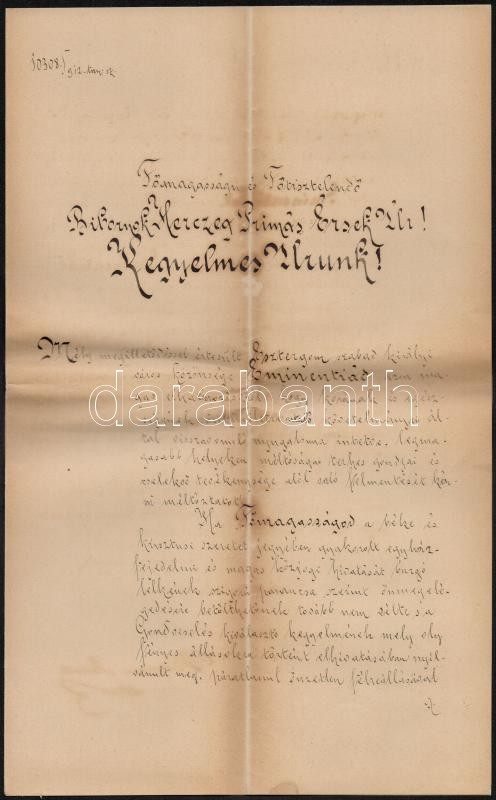 10308/912. kun. sz.
Főmagasságu és Főtisztelendő
Bibornok Herczeg Primás Érsek Ur!
Kegyelmes Urunk!
Mély megilletődéssel értesült Esztergom szabad királyi
város közönsége Eminentiád azon ma-
gas elhatározásáról, hogy korának s egész-
ségének követelményei ál-
tal visszavonuló nyugalomra intetve, legma-
gasabb helyeken méltóságos terhes gondjai és
cselekvő tevékenysége alól való fölmentését kér-
ni méltóztatott.
Ha Főmagasságod a béke és
krisztusi szeretet jegyében gyakorolt egyház-
fejedelmi és magas közjogi hivatását buzgó
lelkének szigorú parancsa szerint önmegelé-
gedésére betölthetőnek tovább nem vélte s a
Gondviselés kiválasztó kegyelmének mely oly
fényes állásokra történt elhivatásában nyil-
vánult meg, páratlanul önzetlen félreállásával
./.
darabanth.com